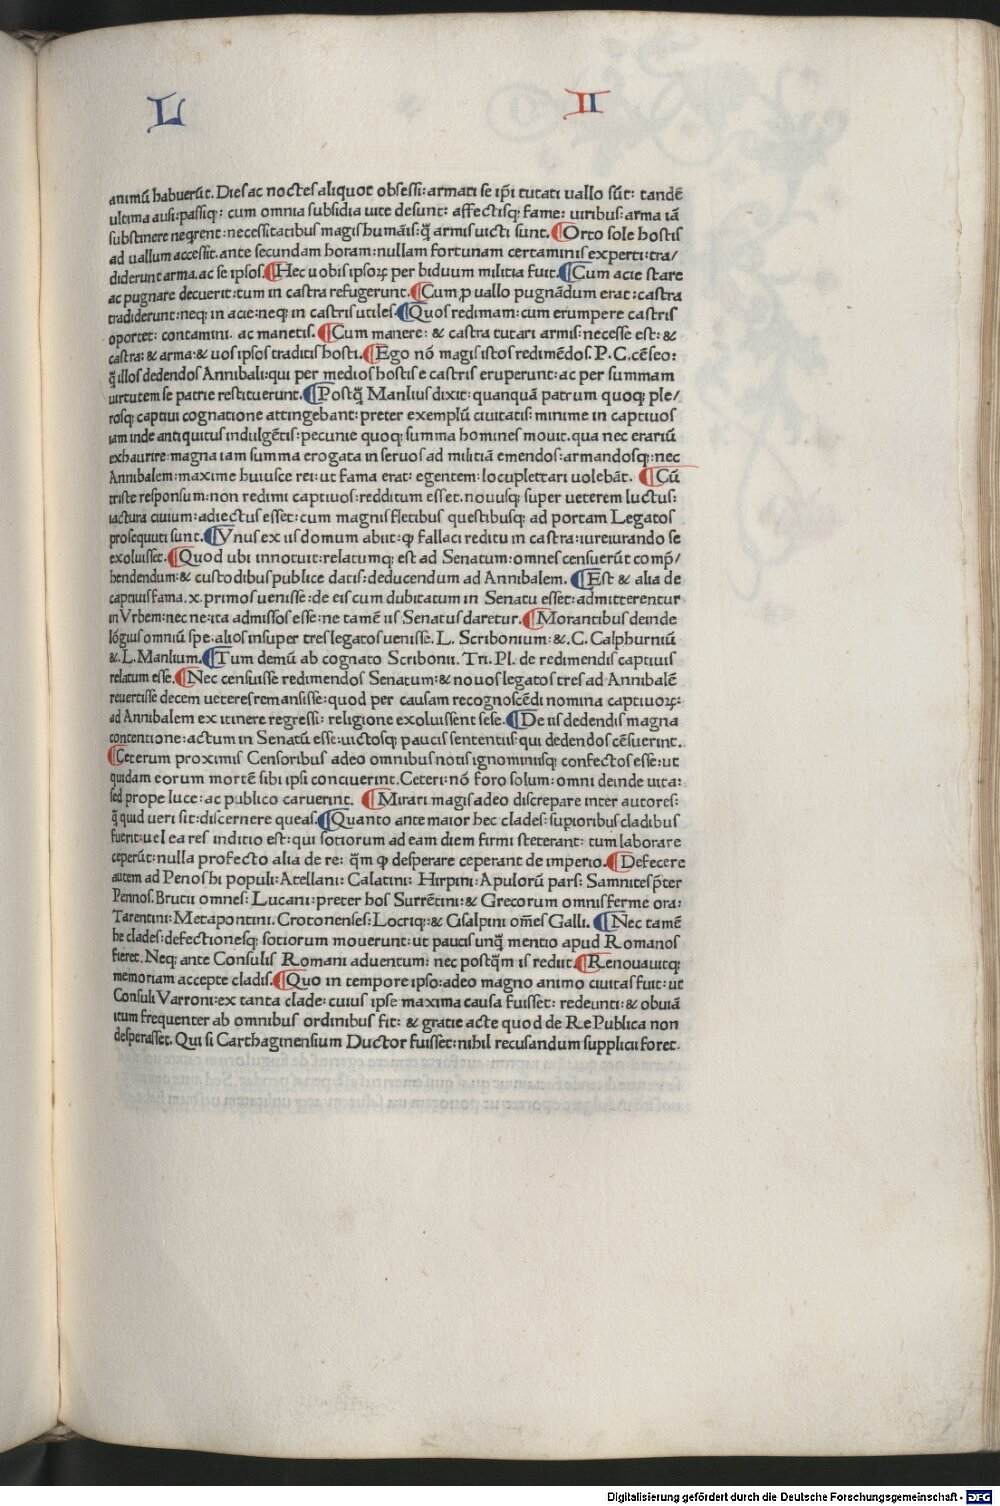 L II
animū habuerūt. Dies ac noctes aliquot obsessi: armati se ip̄i tutati uallo sūt: tandē
ultima ausi: passiq;: cum omnia subsidia uite desunt: affectisq; fame: uiribus: arma iā
substinere neqrent: necessitatibus magis humāis: q̄ armis uicti sunt. ¶Orto sole hostis
ad uallum accessit. ante secundam horam: nullam fortunam certaminis experti: tra/
diderunt arma. ac se ipsos. ¶Hec uobis ipsoꝝ per biduum militia fuit. ¶Cum acie stare
ac pugnare decuerit: tum in castra refugerunt. ¶Cum ꝓ uallo pugnādum erat: castra
tradiderunt: neq; in acie: neq; in castris utiles. ¶Quos redimam: cum erumpere castris
oportet: contamini. ac manetis. ¶Cum manere: & castra tutari armis: necesse est: &
castra: & arma: & uos ipsos traditis hosti. ¶Ego nō magis istos redimēdos. P. C. cēseo:
q̄ illos dedendos Annibali: qui per medios hostis e castris eruperunt: ac per summam
uirtutem se patrie restituerunt. ¶Postq̄ Manlius dixit: quanquā patrum quoq; ple/
rosq; captiui cognatione attingebant: preter exemplū ciuitatis: minime in captiuos
iam inde antiquitus indulgētis: pecunie quoq; summa homines mouit. qua nec erariū
exhaurire: magna iam summa erogata in seruos ad militiā emendos: armandosq;: nec
Annibalem: maxime huiusce rei: ut fama erat: egentem: locuplettari uolebāt. ¶Cū
triste responsum: non redimi captiuos: redditum esset. nouusq; super ueterem luctus:
iactura ciuium: adiectus esset: cum magnis fletibus questibusq; ad portam Legatos
prosequuti sunt. ¶Vnus ex iis domum abiit: ꝙ fallaci reditu in castra: iureiurando se
exoluisset. ¶Quod ubi innotuit: relatumq; est ad Senatum: omnes censuerūt comp̄/
hendendum: & custodibus publice datis: deducendum ad Annibalem. ¶Est & alia de
captiuis fama. x. primos uenisse: de eis cum dubitatum in Senatu esset: admitterentur
in Vrbem: nec ne: ita admissos esse: ne tamē iis Senatus daretur. ¶Morantibus deinde
lōgius omniū spe. alios insuper tres legatos uenisse. L. Scribonium: &. C. Calphurniū
&. L. Manlium. ¶Tum demū ab cognato Scribonii. Tri. Pl. de redimendis captiuis
relatum esse. ¶Nec censuisse redimendos Senatum: & nouos legatos tres ad Annibalē
reuertisse decem ueteres remansisse: quod per causam recognoscēdi nomina captiuoꝝ:
ad Annibalem ex itinere regressi: religione exoluissent sese. ¶De iis dedendis magna
contentione: actum in Senatū esse: uictosq; paucis sententiis: qui dedendos cēsuerint.
¶Ceterum proximis Censoribus adeo omnibus notis ignominiisq; confectos esse: ut
quidam eorum mortē sibi ipsi conciuerint. Ceteri: nō foro solum: omni deinde uita:
sed prope luce: ac publico caruerint. ¶Mirari magis adeo discrepare inter autores:
q̄ quid ueri sit: discernere queas. ¶Quanto ante maior hec clades: supioribus cladibus
fuerit: uel ea res inditio est: qui sotiorum ad eam diem firmi steterant: tum laborare
ceperūt: nulla profecto alia de re: q̄m ꝙ desperare ceperant de imperio. ¶Defecere
autem ad Penos hi populi: Atellani: Calatini: Hirpini: Apulorū pars: Samnites p̄ter
Pennos. Brutii omnes: Lucani: preter hos Surrētini: & Grecorum omnis ferme ora:
Tarentini: Metapontini. Crotonenses: Locriq;: & Cisalpini om̄es Galli. ¶Nec tamē
he clades: defectionesq; sotiorum mouerunt: ut paucis unq̄ mentio apud Romanos
fieret. Neq; ante Consulis Romani aduentum: nec postq̄m is rediit. ¶Renouauitq;
memoriam accepte cladis. ¶Quo in tempore ipso: adeo magno animo ciuitas fuit: ut
Consuli Varroni: ex tanta clade: cuius ipse maxima causa fuisset: redeunti: & obuiā
itum frequenter ab omnibus ordinibus fit: & gratie acte quod de Re Publica non
desperasset. Qui si Carthaginensium Ductor fuisset: nihil recusandum supplicii foret.
Digitalisierung gefördert durch die Deutsche Forschungsgemeinschaft - DFG